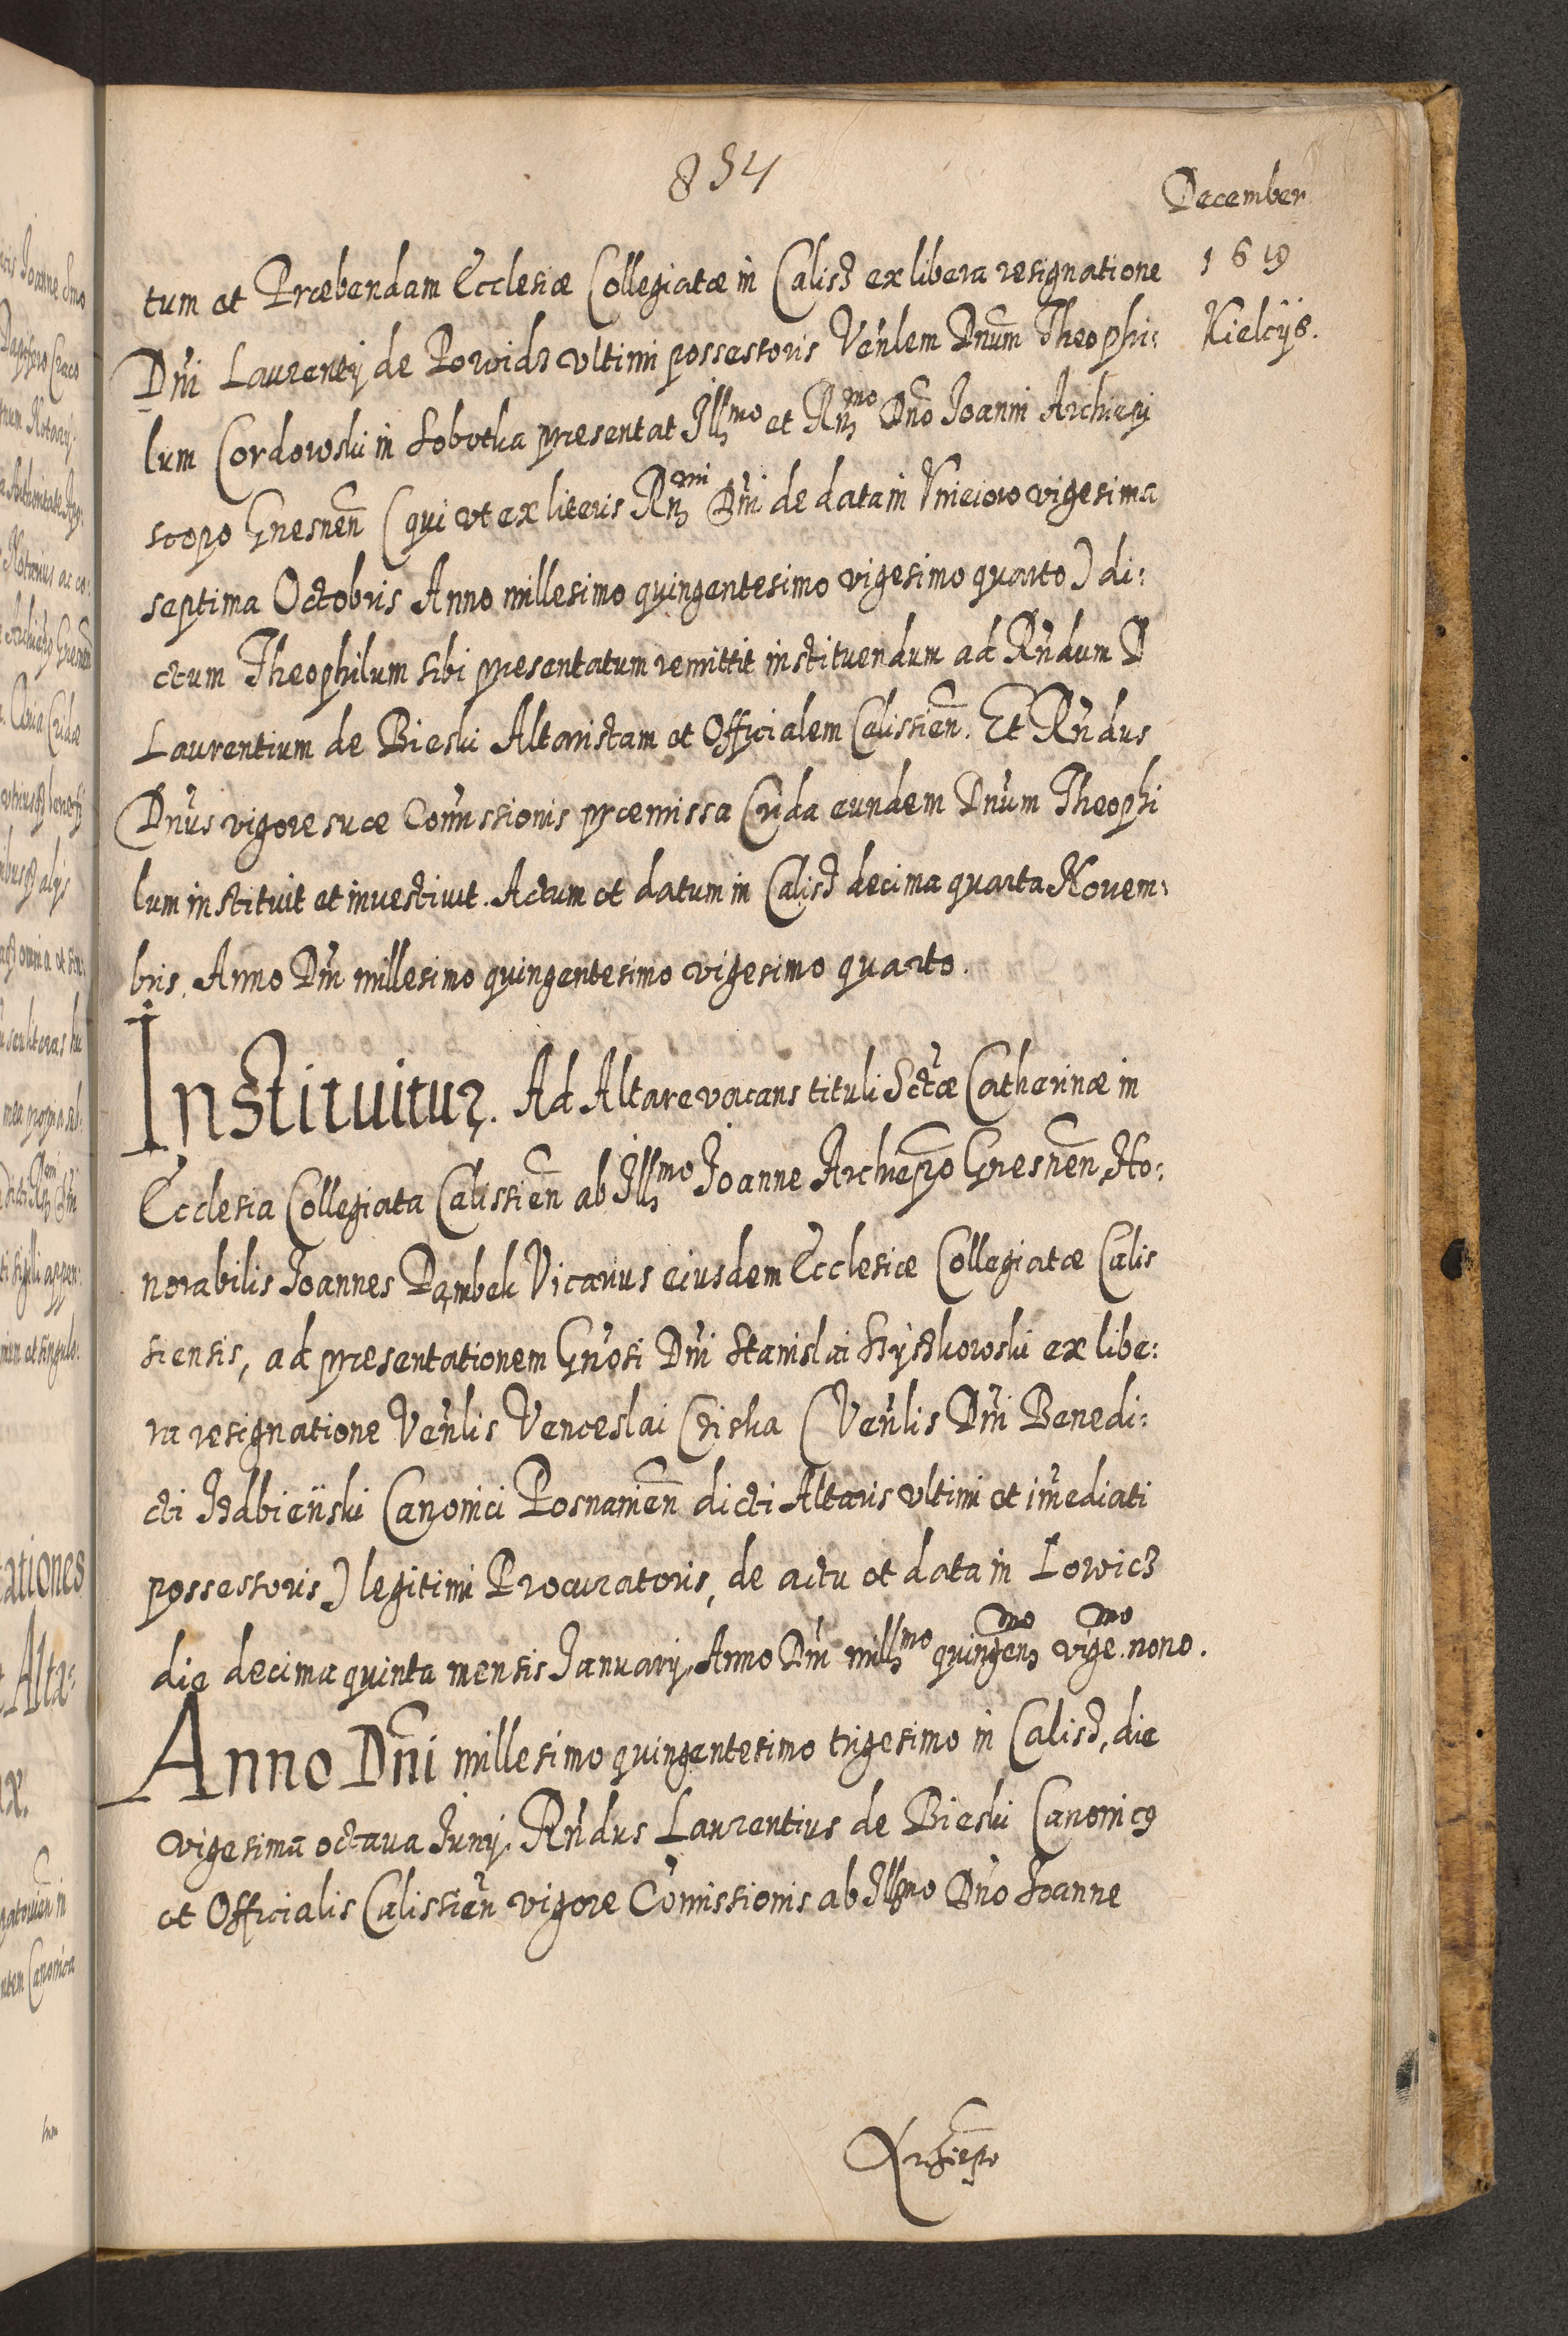 854
December
1619
Kielcÿs.
tum et Præbendam Ecclesiæ Collegiatæ in Calisz ex libera resignatione
Dñi Laurentij de Powidz vltimi possessoris Veñlem Dnum Theophi:
lum Cordowski in Sobotka presentat Illmo et Rnmo Dño Joanni Archiepi
scopo Gnesneñ (qui vt ex literis Rnmi Dñi de data in Vnieiow vigesima
septima Octobris Anno millesimo quingentesimo vigesimo quarto) di:
ctum Theophilum sibi presentatum remittit instituendum ad Rñdum D
Laurentium de Bieski Altaristam et Officialem Calissieñ. Et Rñdus
Dñus vigore suæ Comissionis præmissa Crida eundem Dñum Theophi
lum instituit et investiuit. Actum et datum in Calisz decima quarta Nouem:
bris. Anno Dñi millesimo quingentesimo vigesimo quarto.
Instituitur. Ad Altare vacans tituli Sctæ Catherinæ in
Ecclesia Collegiata Calissieñ ab Illmo Joanne Archiepo Gnesneñ, Ho:
norabilis Joannes Dąmbek Vicarius eiusdem Ecclesiæ Collegiatæ Calis
siensis, ad presentationem Gñosi Dñi Stanislai Siÿszkowski ex libe:
ra resignatione Veñlis Venceslai Cziska (Veñlis Dñi Benedi:
cti Izdbieński Canonici Posnanieñ dicti Altaris vltimi et imediati
possessoris) legitimi Procuratoris, de actu et data in Lowicz
die decima quinta mensis Januarij, Anno Dñi millmo quingenmo vigemo. nono.
Anno Dñi millesimo quingentesimo trigesimo in Calisz, die
vigesima octaua Junij. Rñdus Laurentius de Bieski Canonicꝯ
et Officialis Calissieñ vigore Comissionis ab Illmo Dño Joanne
Archiepo